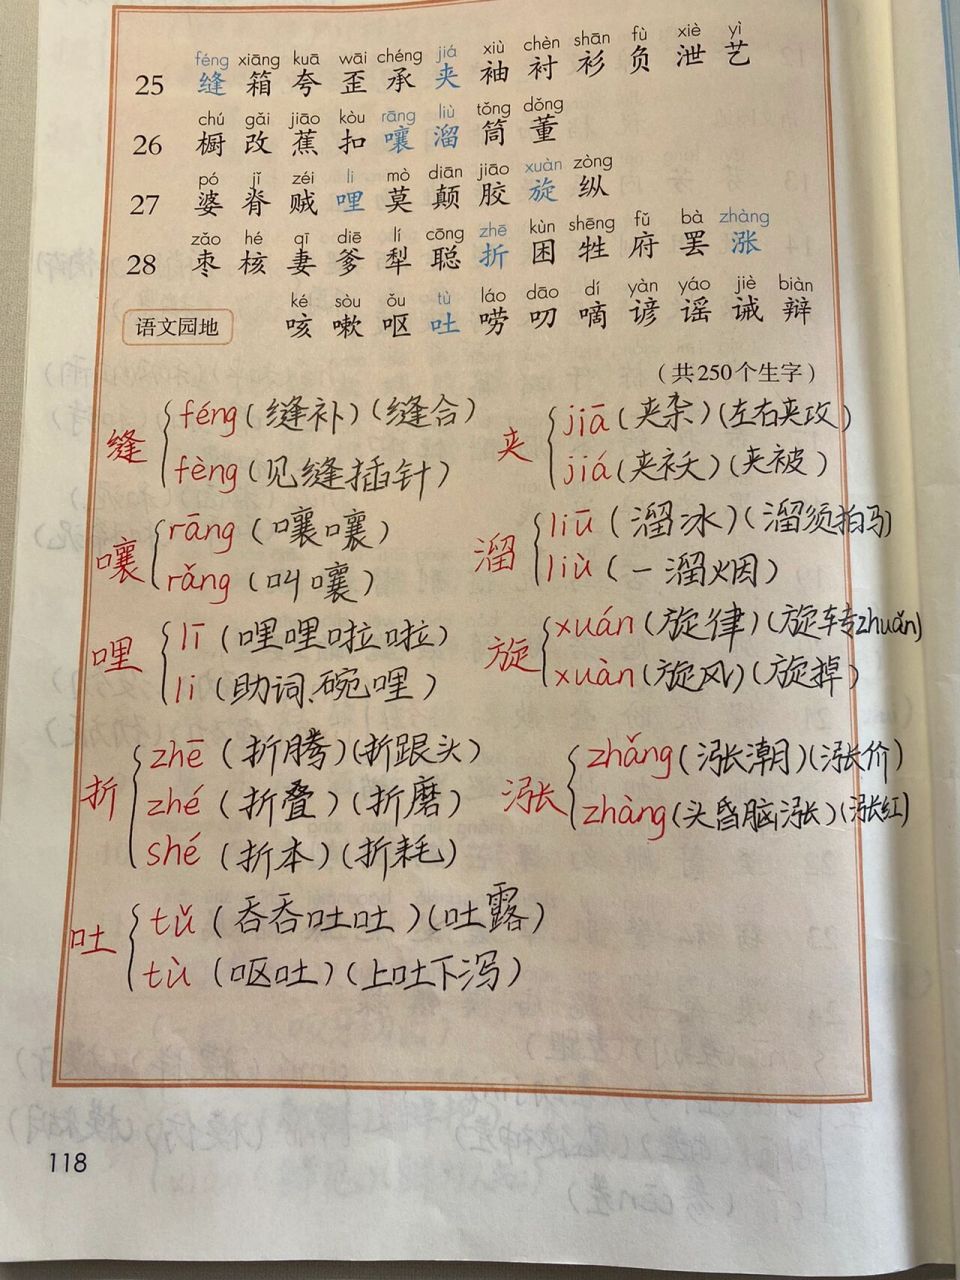 féng xiāng kuā wāi chéng jiá xiù chèn shān fù xiè yì
25 缝 箱 夸 歪 承 夹 袖 衬 衫 负 泄 艺
chú gǎi jiāo kòu rāng liù tǒng dǒng
26 橱 改 蕉 扣 嚷 溜 筒 董
pó jǐ zéi li mò diān jiāo xuàn zòng
27 婆 脊 贼 哩 莫 颠 胶 旋 纵
zǎo hé qī diē lí cōng zhē kùn shēng fǔ bà zhàng
28 枣 核 妻 爹 犁 聪 折 困 牲 府 罢 涨
ké sòu ǒu tù láo dāo dí yàn yáo jiè biàn
语文园地 咳 嗽 呕 吐 唠 叨 嘀 谚 谣 诫 辩
（共250个生字）
缝 féng(缝补)(缝合)
fèng(见缝插针)
夹 jiā(夹杂)(左右夹攻)
jiá(夹袄)(夹被)
嚷 rāng(嚷嚷)
rǎng(叫嚷)
溜 liū(溜冰)(溜须拍马)
liù(一溜烟)
哩 lī(哩哩啦啦)
li(助词.碗哩)
旋 xuán(旋律)(旋转zhuǎn)
xuàn(旋风)(旋掉)
折 zhē(折腾)(折跟头)
zhé(折叠)(折磨)
shé(折本)(折耗)
涨 zhǎng(涨潮)(涨价)
zhàng(头昏脑涨)(涨红)
吐 tǔ(吞吞吐吐)(吐露)
tù(呕吐)(上吐下泻)
118